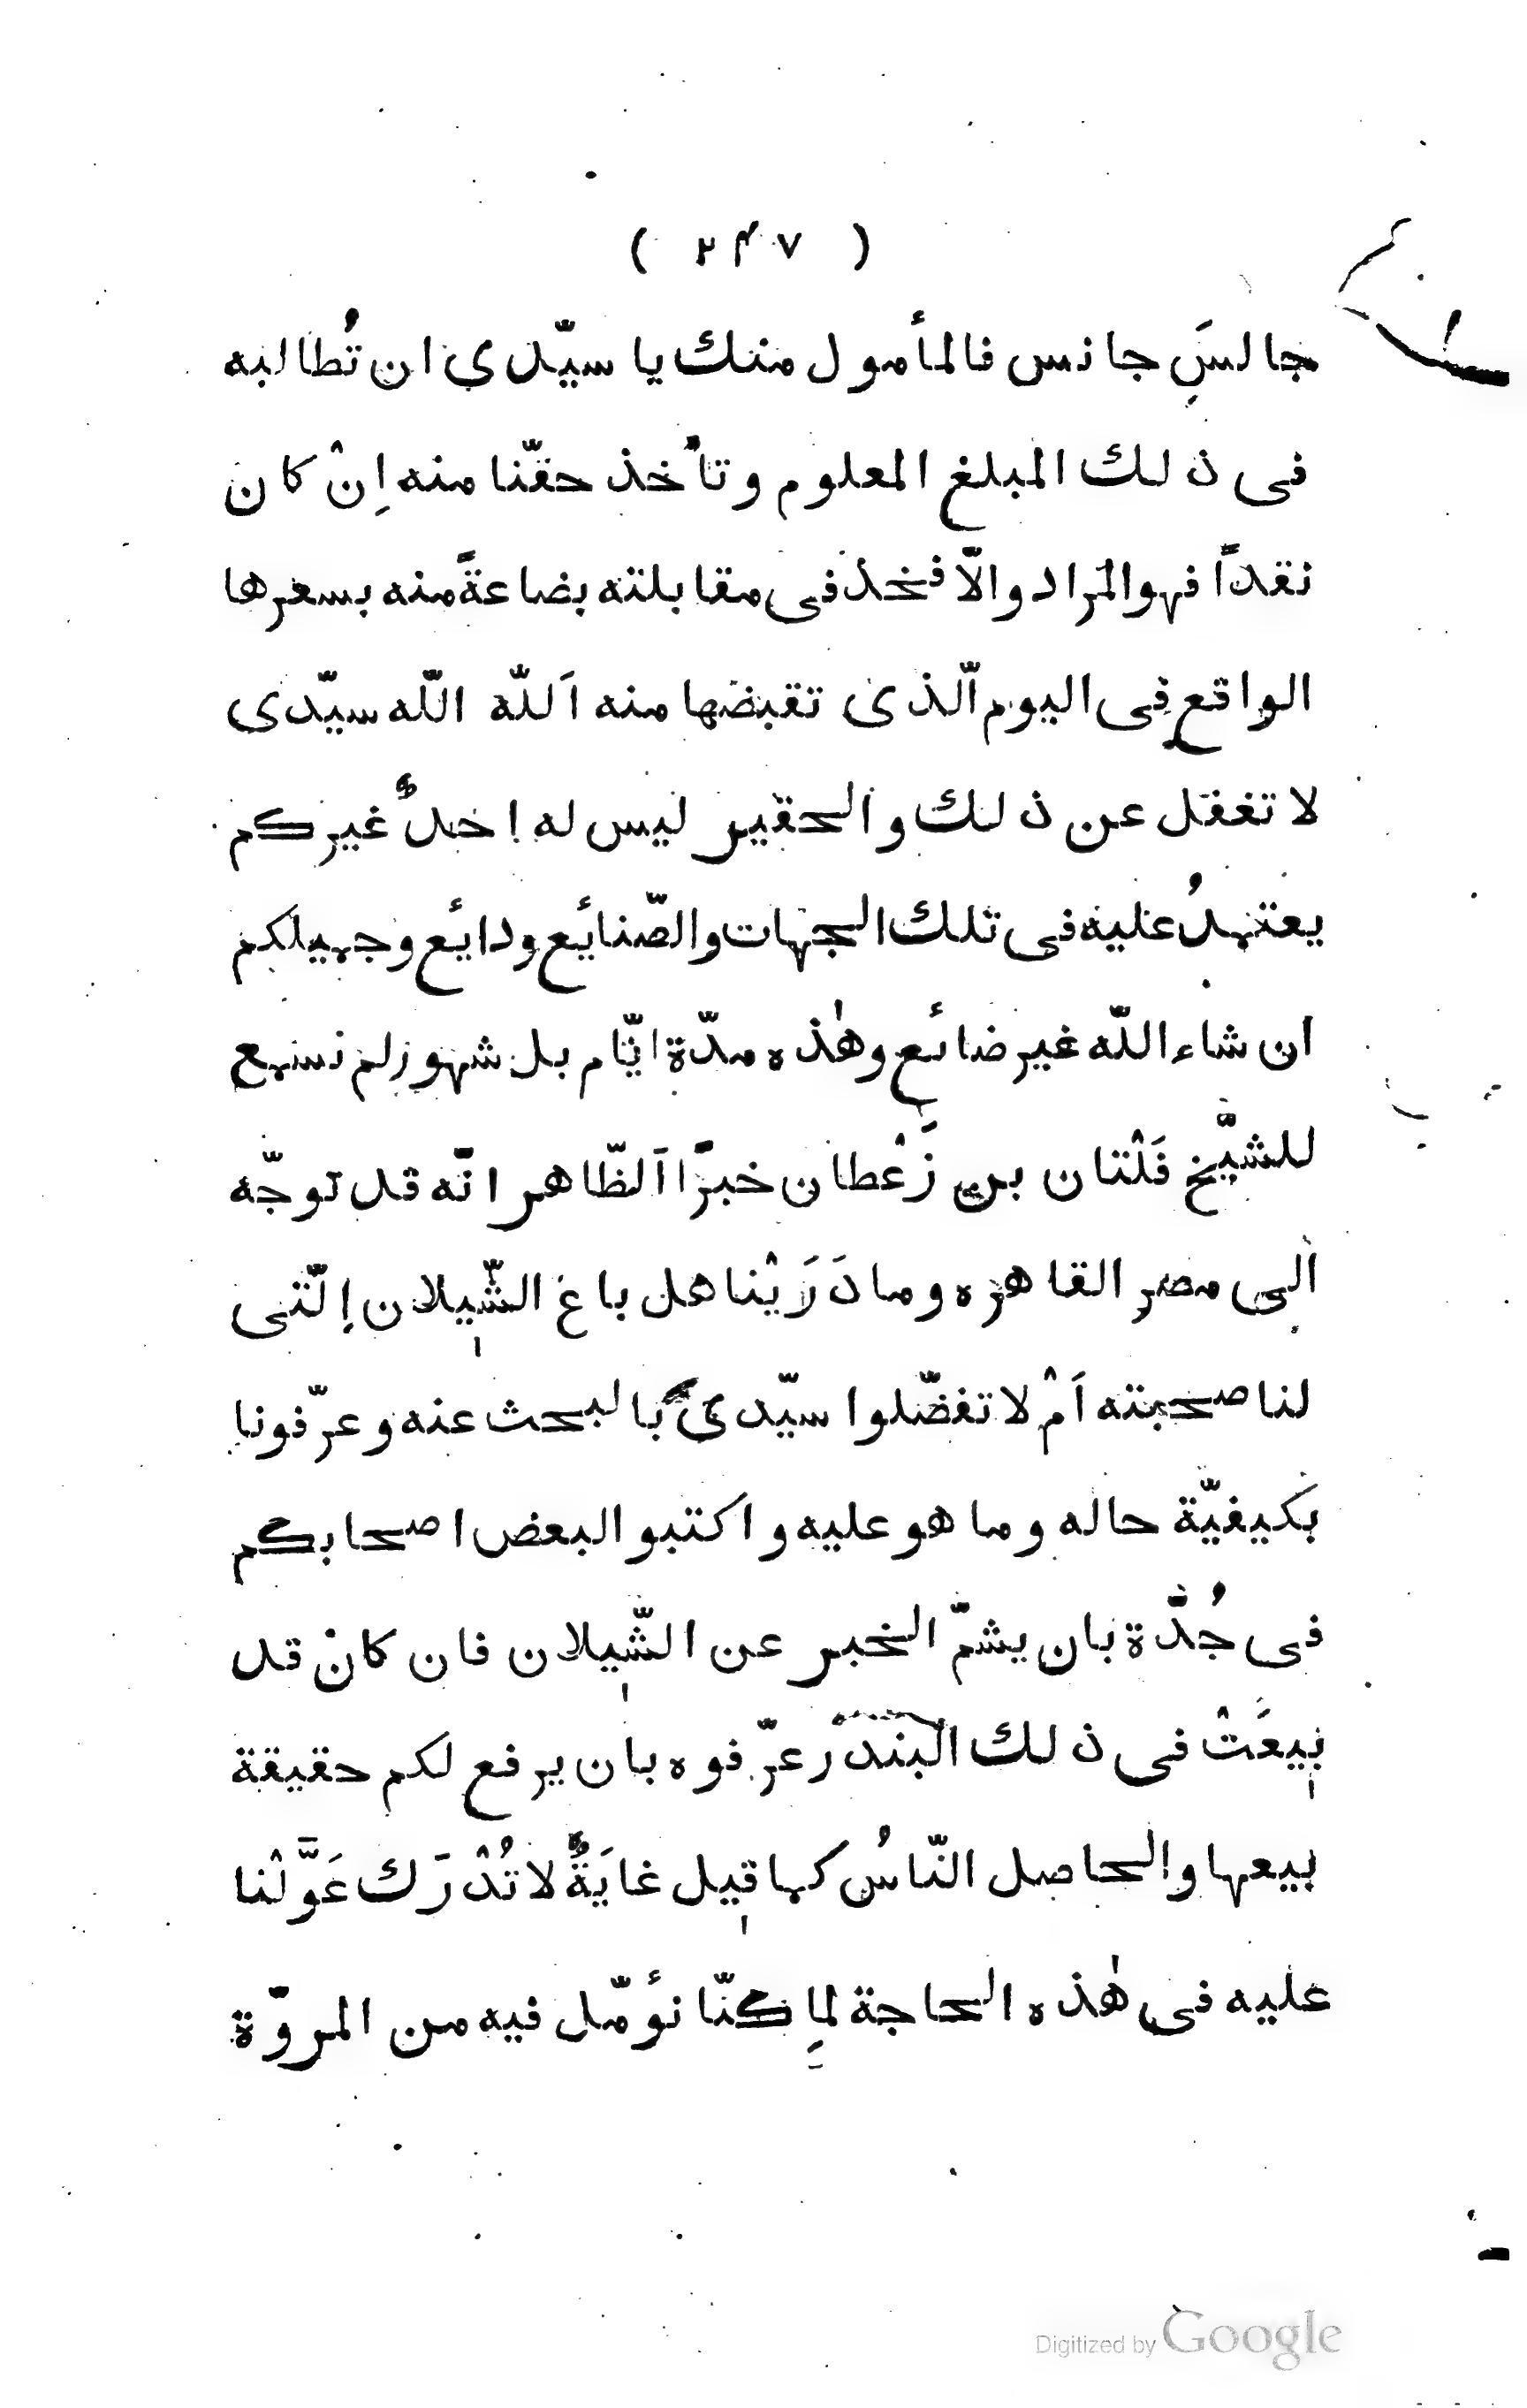 ( ٢٤٧ )
جالسَِ جانس فالمأمول منك يا سيّدي ان تُطالبه
فى ذلك المبلغ المعلوم وتأخذ حقّنا منه اِنْ كان
نقداً فهو المراد والّا فخذ فى مقابلته بضاعةً منه بسعرها
الواقع فى اليوم الّذى تقبضها منه اَللّه اللّه سيّدى
لا تغفل عن ذلك والحقير ليس له احدٌ غيركم
يعتمدُ عليه فى تلك الجهات والصّنائع ودائع وجميلكم
ان شاء اللّه غير ضائع وهٰذه مدّة ايّام بل شهور لم نسمع
للشيّخ فَلْتان بن زَعْطان خبرًا اَلظّاهر انّه قد توجّه
الى مصر القاهره وما دَرَيْنا هل باع الشّيلان اِلّتى
لنا صحبته اَمْ لا تفضّلوا سيّدى بالبحث عنه وعرّفونا
بكيفيّة حاله وما هو عليه واكتبوا لبعض اصحابكم
فى جُدّة بان يشمّ الخبر عن الشّيلان فان كانْ قد
بيعَتْ فى ذلك البَنْدَر عرّفوه بان يرفع لكم حقيقة
بيعها والحاصل النّاسُ كما قيل غايَةٌ لا تُدْرَك عَوَّلْنا
عليه فى هٰذه الحاجة لمِا كنّا نؤمّل فيه من المروّة
Digitized by Google